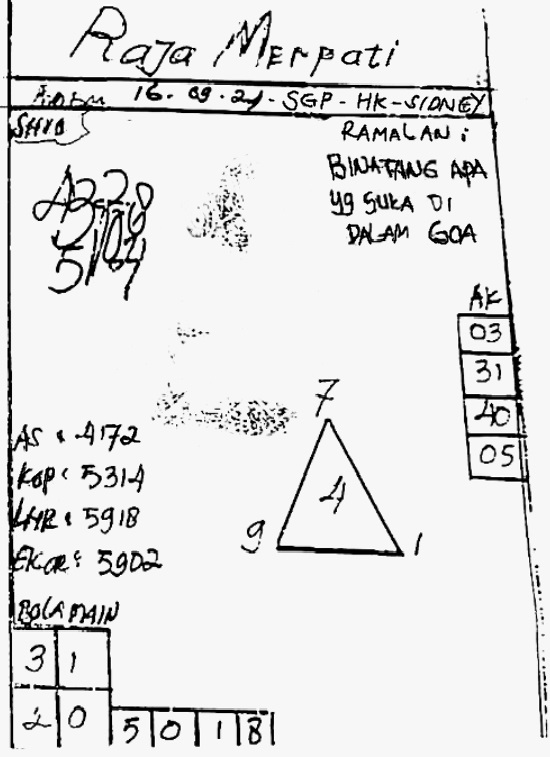 Raja Merpati
16.09.21.SGP-HK-SIDNEY
RAMALAN:
BINATANG APA
yg SUKA DI
DALAM GOA
AK
03
31
40
05
7
4
9 1
AS : 4172
Kop : 5314
5918
EKOR : 5902
BOLA MAIN
3 1
2 0
5 0 1 8